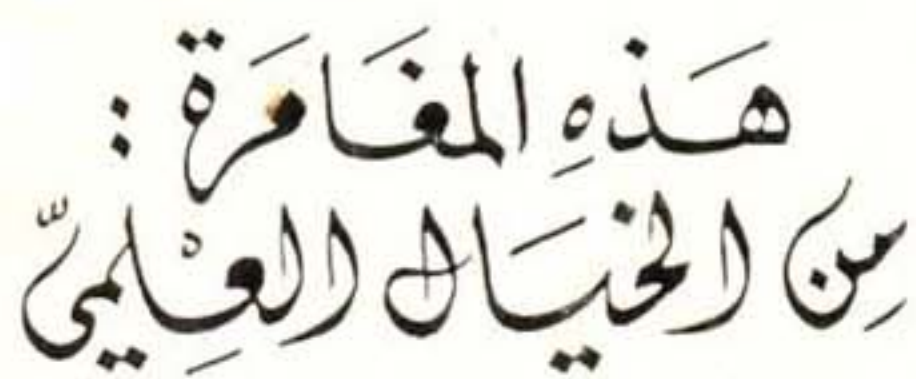 هَذِهِ المغَامَرَة :
مِن الخيَال العِلْميّ